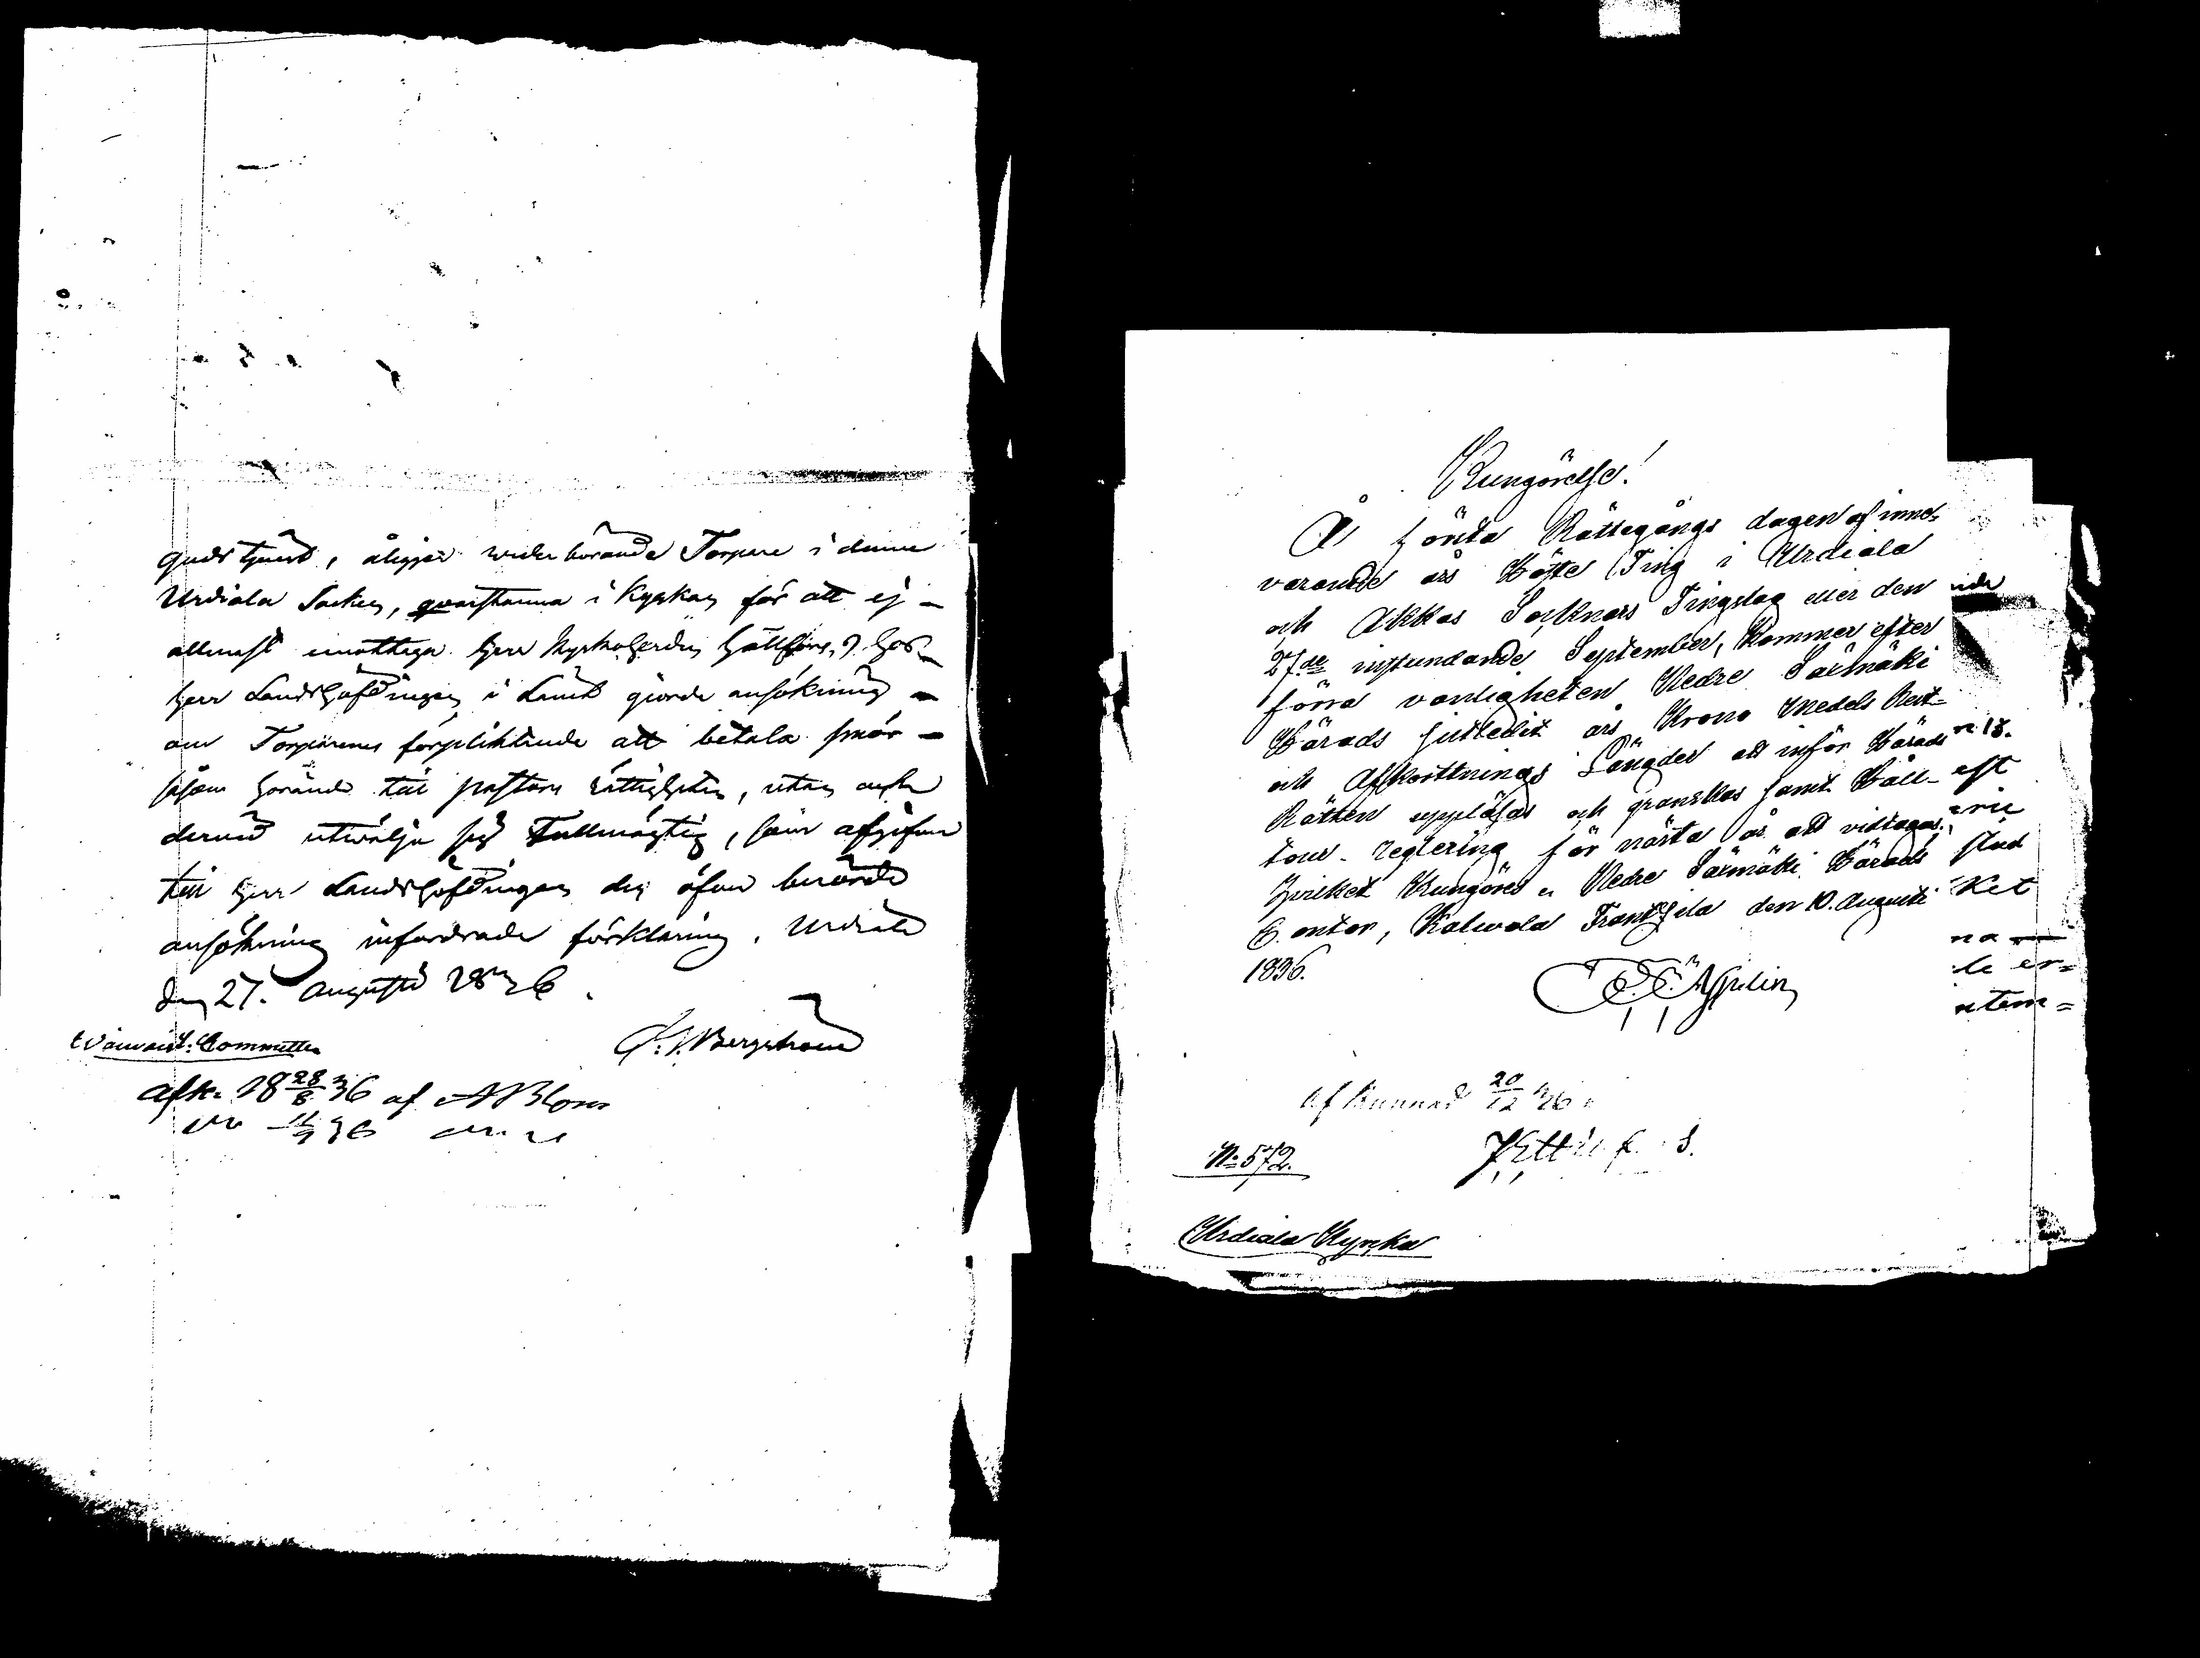 Guds tjenst, åligger wederbörande Torpare i denne
Urdiala Socken, qvarstanna i Kyrkan för att ej
allenast emottaga Herr Kyrkoherden hos
Herr Landshöfdingen i Länet gjorde ansökning
om Torparenes förpliktande att betala smör
såsom hörande till pastors rättigheten, utan ock
dervid utwälja sig Fullmägtig, som afgifver
till Herr Landshöfdingen den öfver berörde
ansökning infordrade förklaring. Urdiala
den 27. Augusti 1836.
Bergström
Committee
Afk. 18 28/8 36 af Blom
11/9 36
Kungörelse!
Å första Rättegångs dagen af inne-
varande års Höste Ting i Urdiala
och Akkas Socknars Tingslag eller den
27de instundande September, kommer efter
förra vanligheten Nedre Saxmäki
Härads sistledit års Krono Medels Rest
och Afkorttnings Längder att inför Härads
Rätten uppläsas och granskas samt Håll-
tour-reglering för nästa år att vidtagas;
Hvilket Kungöres. Nedre Saxmäki Härads
Contor, Kalwola Frantsila den 10. Augusti
1836.
Äsplin
Afkunnad 20/12 36
N: 572.
Urdiala Kyrka
n 18.
est
rie
stad
ket
na
le er=
utem=